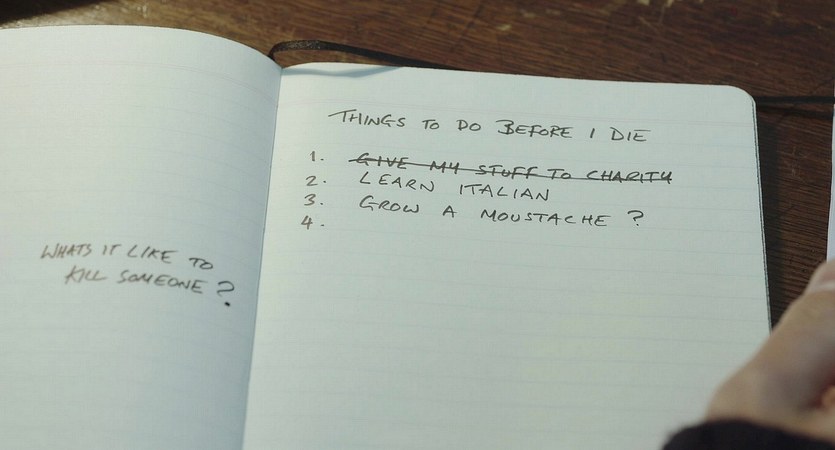 WHATS IT LIKE TO
KILL SOMEONE?
THINGS TO DO BEFORE I DIE
1. GIVE MY STUFF TO CHARITY
2. LEARN ITALIAN
3. GROW A MOUSTACHE ?
4.